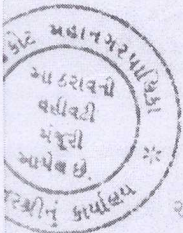 કોટ મહાનગરપાલિકા
આ ઠરાવની
વહીવટી
મંજુરી
આપેલ છે.
રશ્રીનું કાર્યાલય